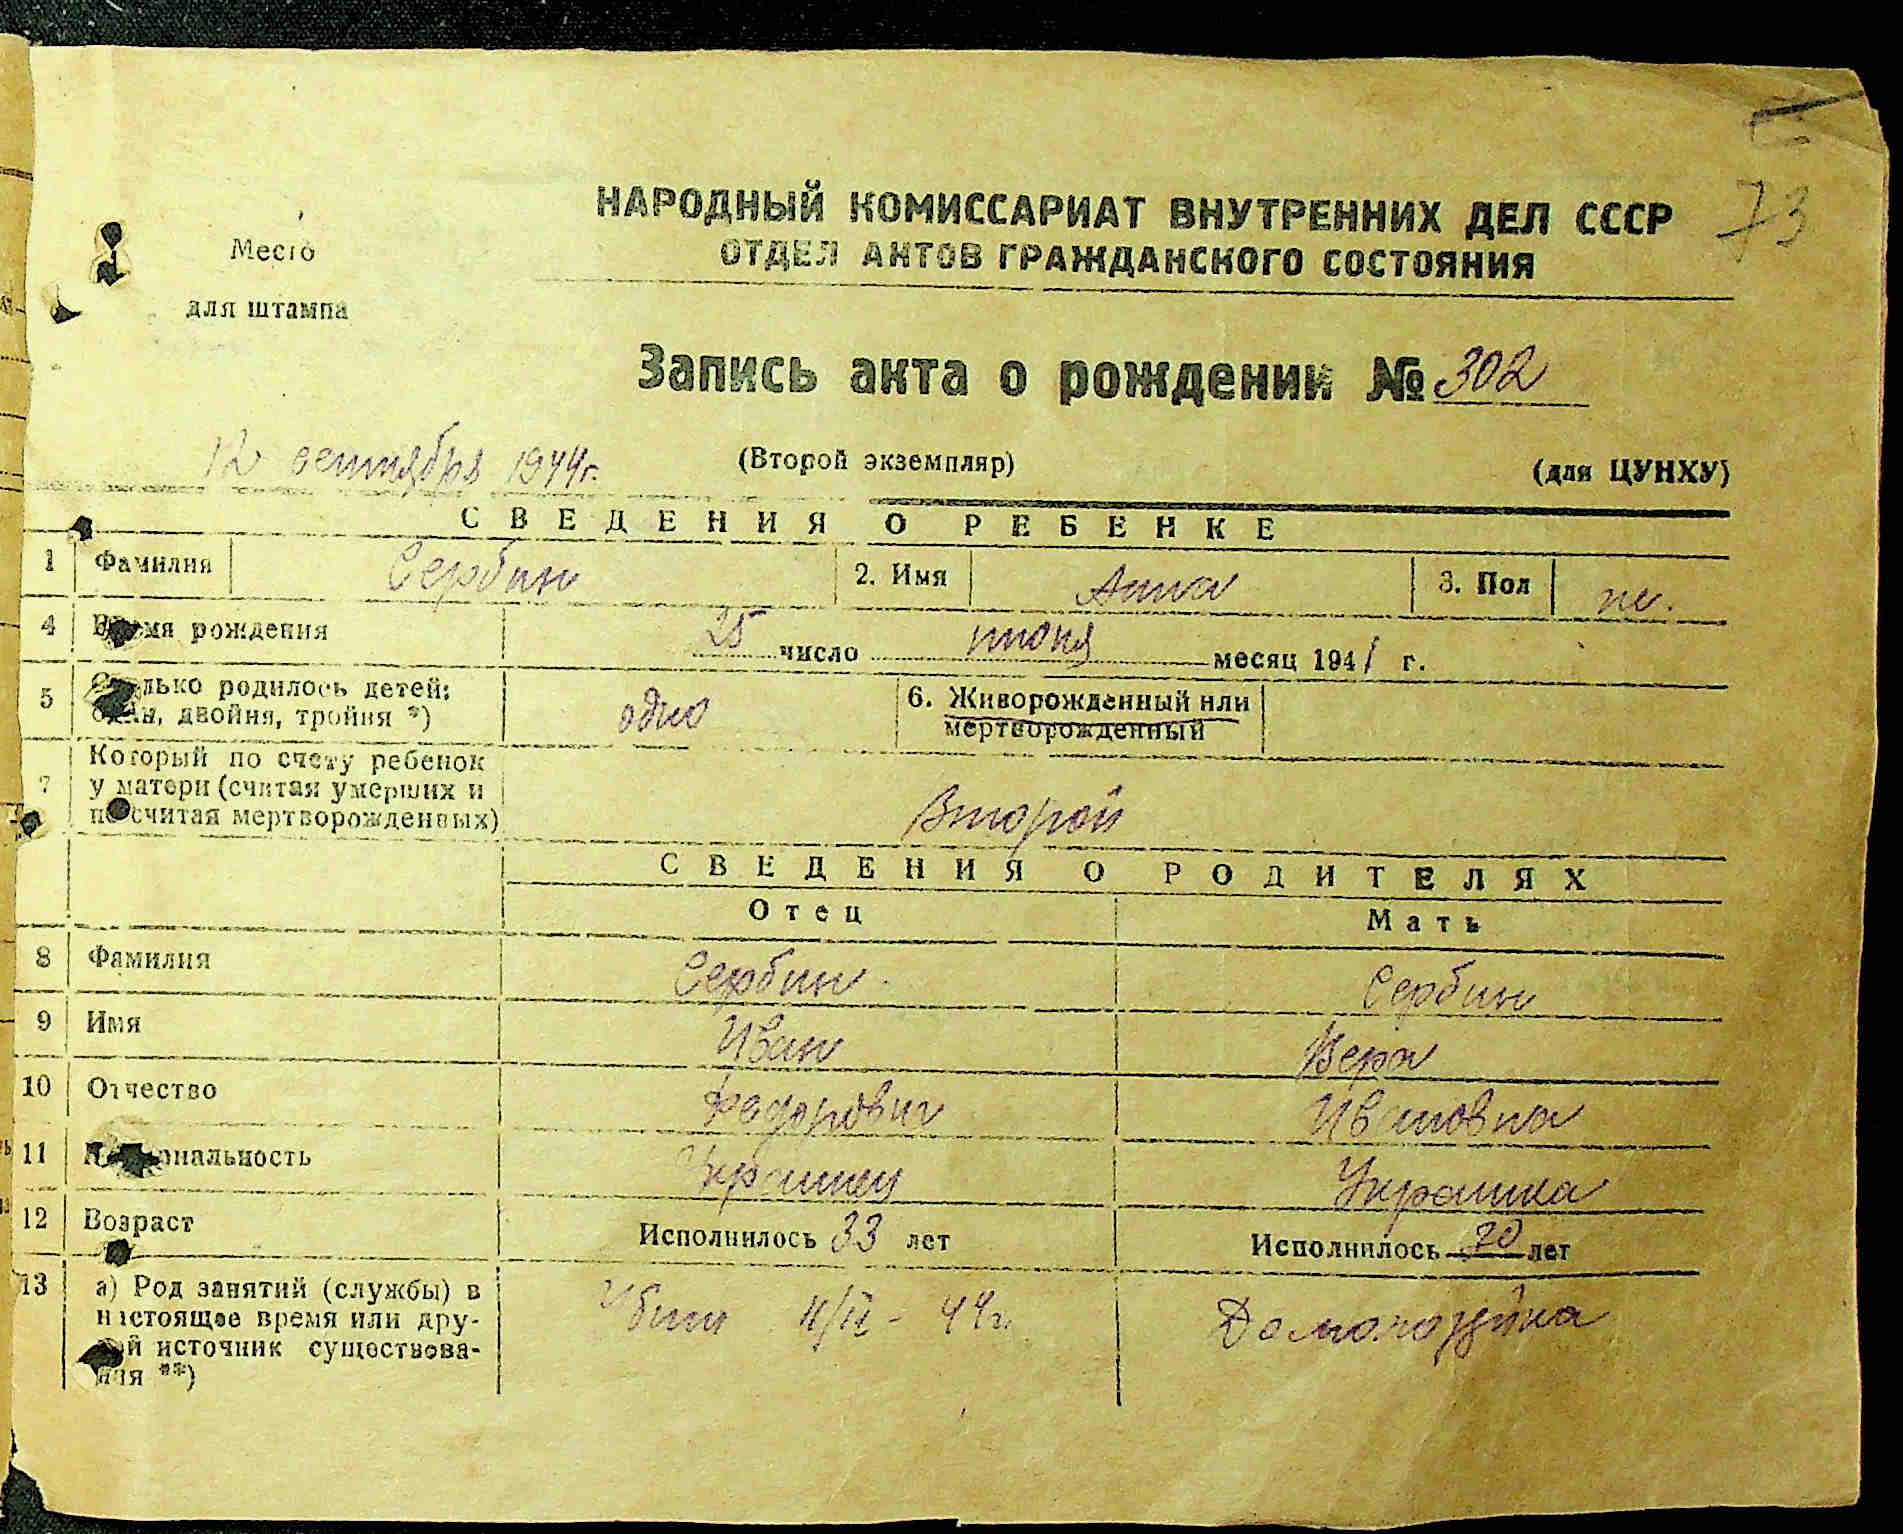 73
Место
для штампа
НАРОДНЫЙ КОМИССАРИАТ ВНУТРЕННИХ ДЕЛ СССР
ОТДЕЛ АКТОВ ГРАЖДАНСКОГО СОСТОЯНИЯ
Запись акта о рождении № 302
12 сентября 1944г.
(Второй экземпляр)
(для ЦУНХУ)
СВЕДЕНИЯ О РЕБЕНКЕ
1 Фамилия Сербин 2. Имя Анна 3. Пол
4 Время рождения 25 число июня месяц 1941 г.
5 Сколько родилось детей:
один, двойня, тройня *) одно
6. Живорожденный или
мертворожденный
7 Который по счету ребенок
у матери (считая умерших и
не считая мертворожденных) Второй
СВЕДЕНИЯ О РОДИТЕЛЯХ
Отец Мать
8 Фамилия Сербин Сербин
9 Имя Иван Вера
10 Отчество Федорович Ивановна
11 Национальность Украинец Украинка
12 Возраст Исполнилось 33 лет Исполнилось лет
13 а) Род занятий (службы) в
настоящее время или дру-
гой источник существова-
ния **)
Убит II/II - 44г. Домохозяйка